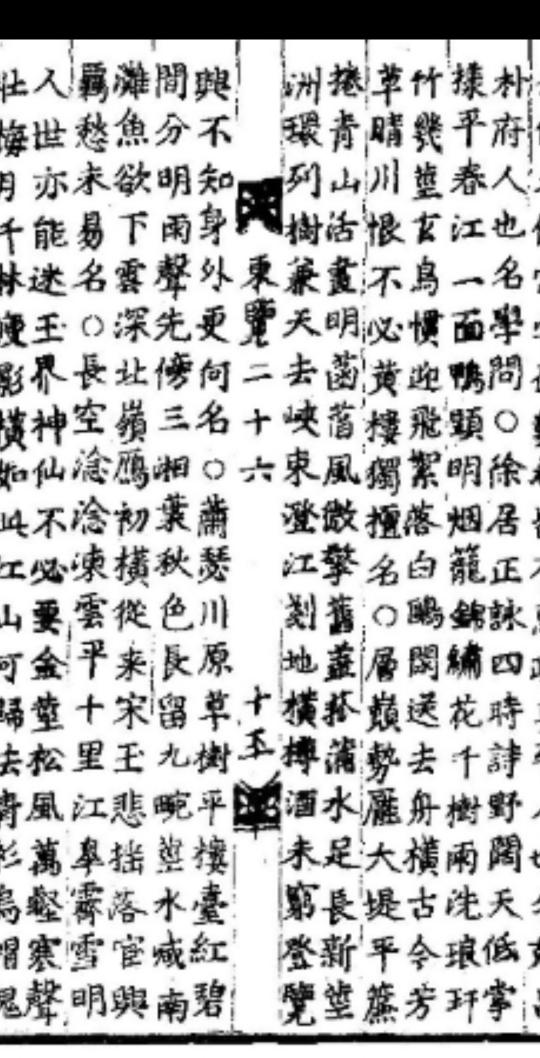 朴府人也名學問○徐居正詠四時詩野闊天低掌
㨾平春江一面鴨頭明烟籠錦繡花千樹雨洗琅玕
竹幾叢玄鳥慣迎飛絮落白鷗閑送去舟橫古今芳
草晴川恨不必黃樓獨擅名○層巔勢壓大堤平簾
捲靑山活畫明菡萏風微擎舊蓋菰蒲水足長新莖
洲環列樹兼天去峽束澄江剗地橫樽酒未窮登覽
東覽二十六
十五
興不知身外更何名○蕭瑟川原草樹平樓臺紅碧
間分明雨聲先傍三湘葉秋色長留九畹莖水咸南
灘魚欲下雲深北嶺鴈初橫從來宋玉悲搖落官興
羈愁未易名○長空淰淰凍雲平十里江皐霽雪明
人世亦能迷玉界神仙不必要金莖松風萬壑寒聲
壯梅月千林瘦影橫如此江山可歸去靑衫烏帽愧